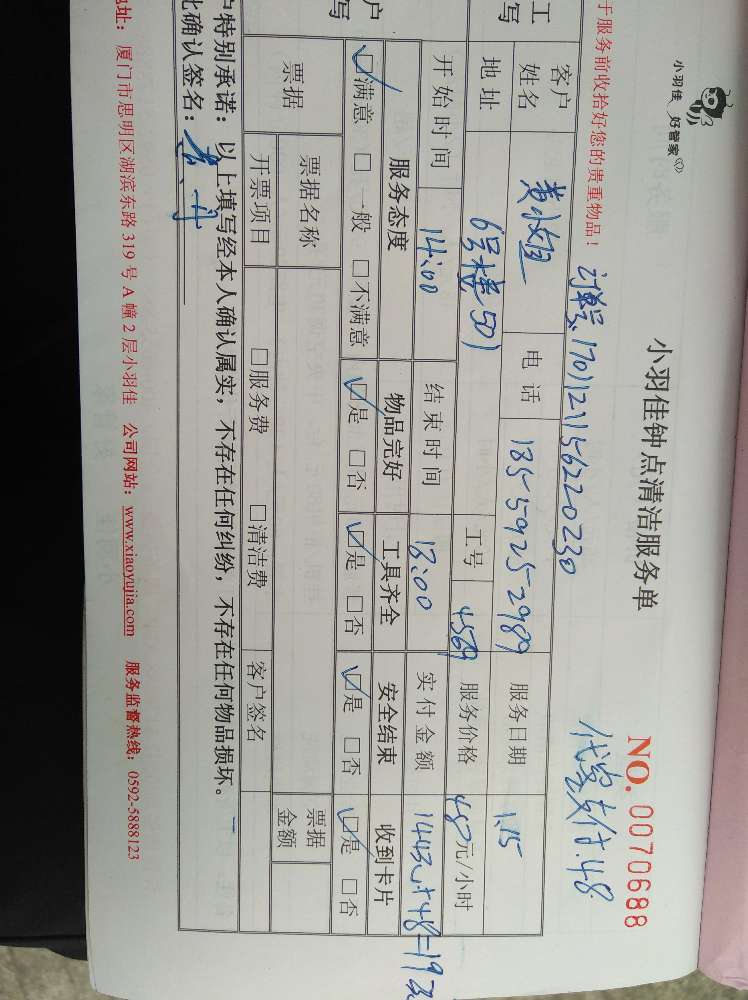 小羽佳 好管家
小羽佳钟点清洁服务单
NO. 0070688
代客支付.48
于服务前收拾好您的贵重物品！
订单号1701121156220230
客户姓名 黄小姐 电话 135-5925-2989 服务日期 1.15
工写 地址 6号楼501 工号 4569 服务价格 48元/小时
开始时间 14:00 结束时间 18:00 实付金额 144元+48=192
户写 服务态度 物品完好 工具齐全 安全结束 收到卡片
☑满意 □一般 □不满意 ☑是 □否 ☑是 □否 ☑是 □否 ☑是 □否
票据 票据名称 票据金额
开票项目 □服务费 □清洁费 客户签名
户特别承诺：以上填写经本人确认属实，不存在任何纠纷，不存在任何物品损坏。
比确认签名：
地址：厦门市思明区湖滨东路319号A幢2层小羽佳 公司网站：www.xiaoyujia.com 服务监督热线：0592-5888123